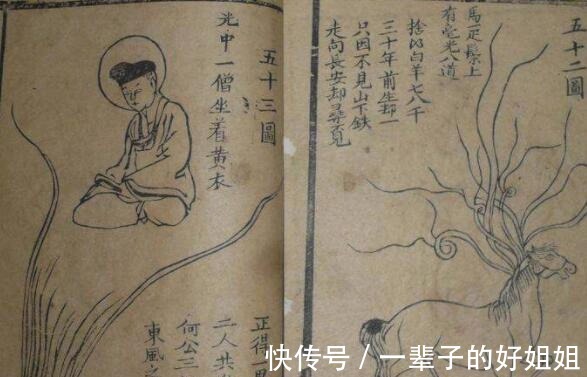 五十二圖
馬疋鬃上
有毫光八道
捨以白羊七八千
三十年前生却一
只因不見山下鉄
走向長安却尋覓
五十三圖
光中一僧坐着黃衣
正得
二人共
何公三
東風之
快传号／一辈子的好姐姐